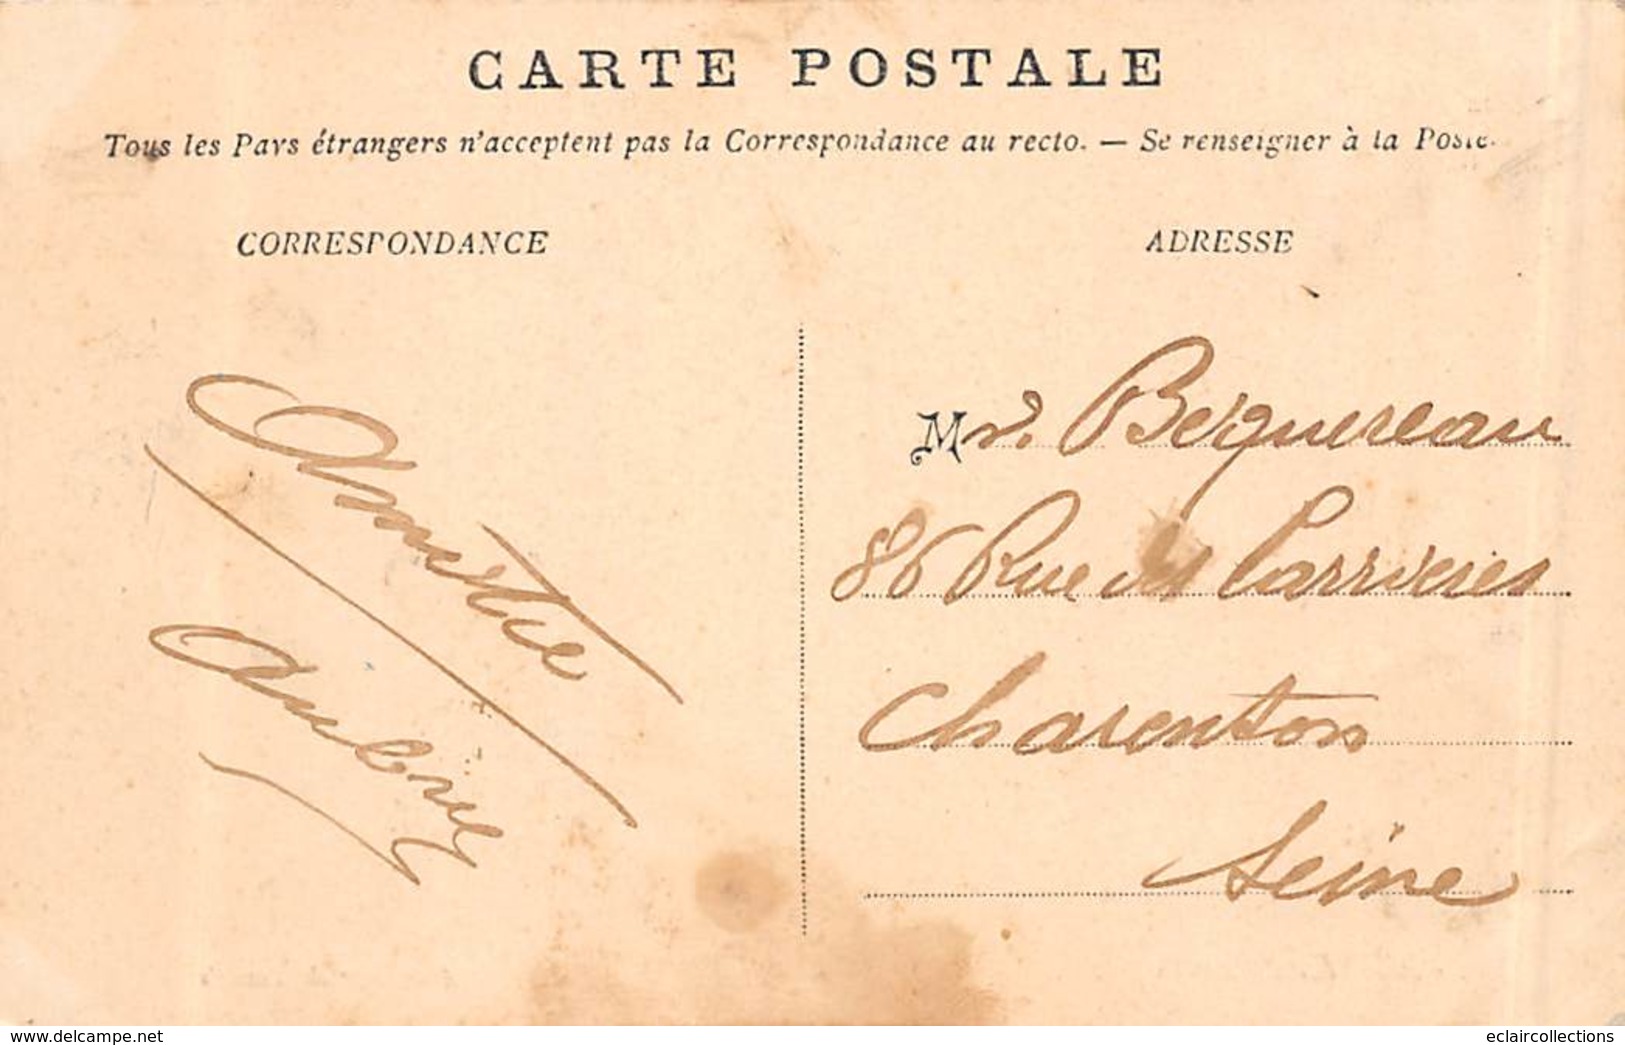 CARTE POSTALE
Tous les Pays étrangers n'acceptent pas la Correspondance au recto. — Se renseigner à la Poste.
CORRESPONDANCE
ADRESSE
Amitié
Mr. Berquereau
86 Rue des Carrieres
Charenton
Seine
www.delcampe.net
eclaircollections